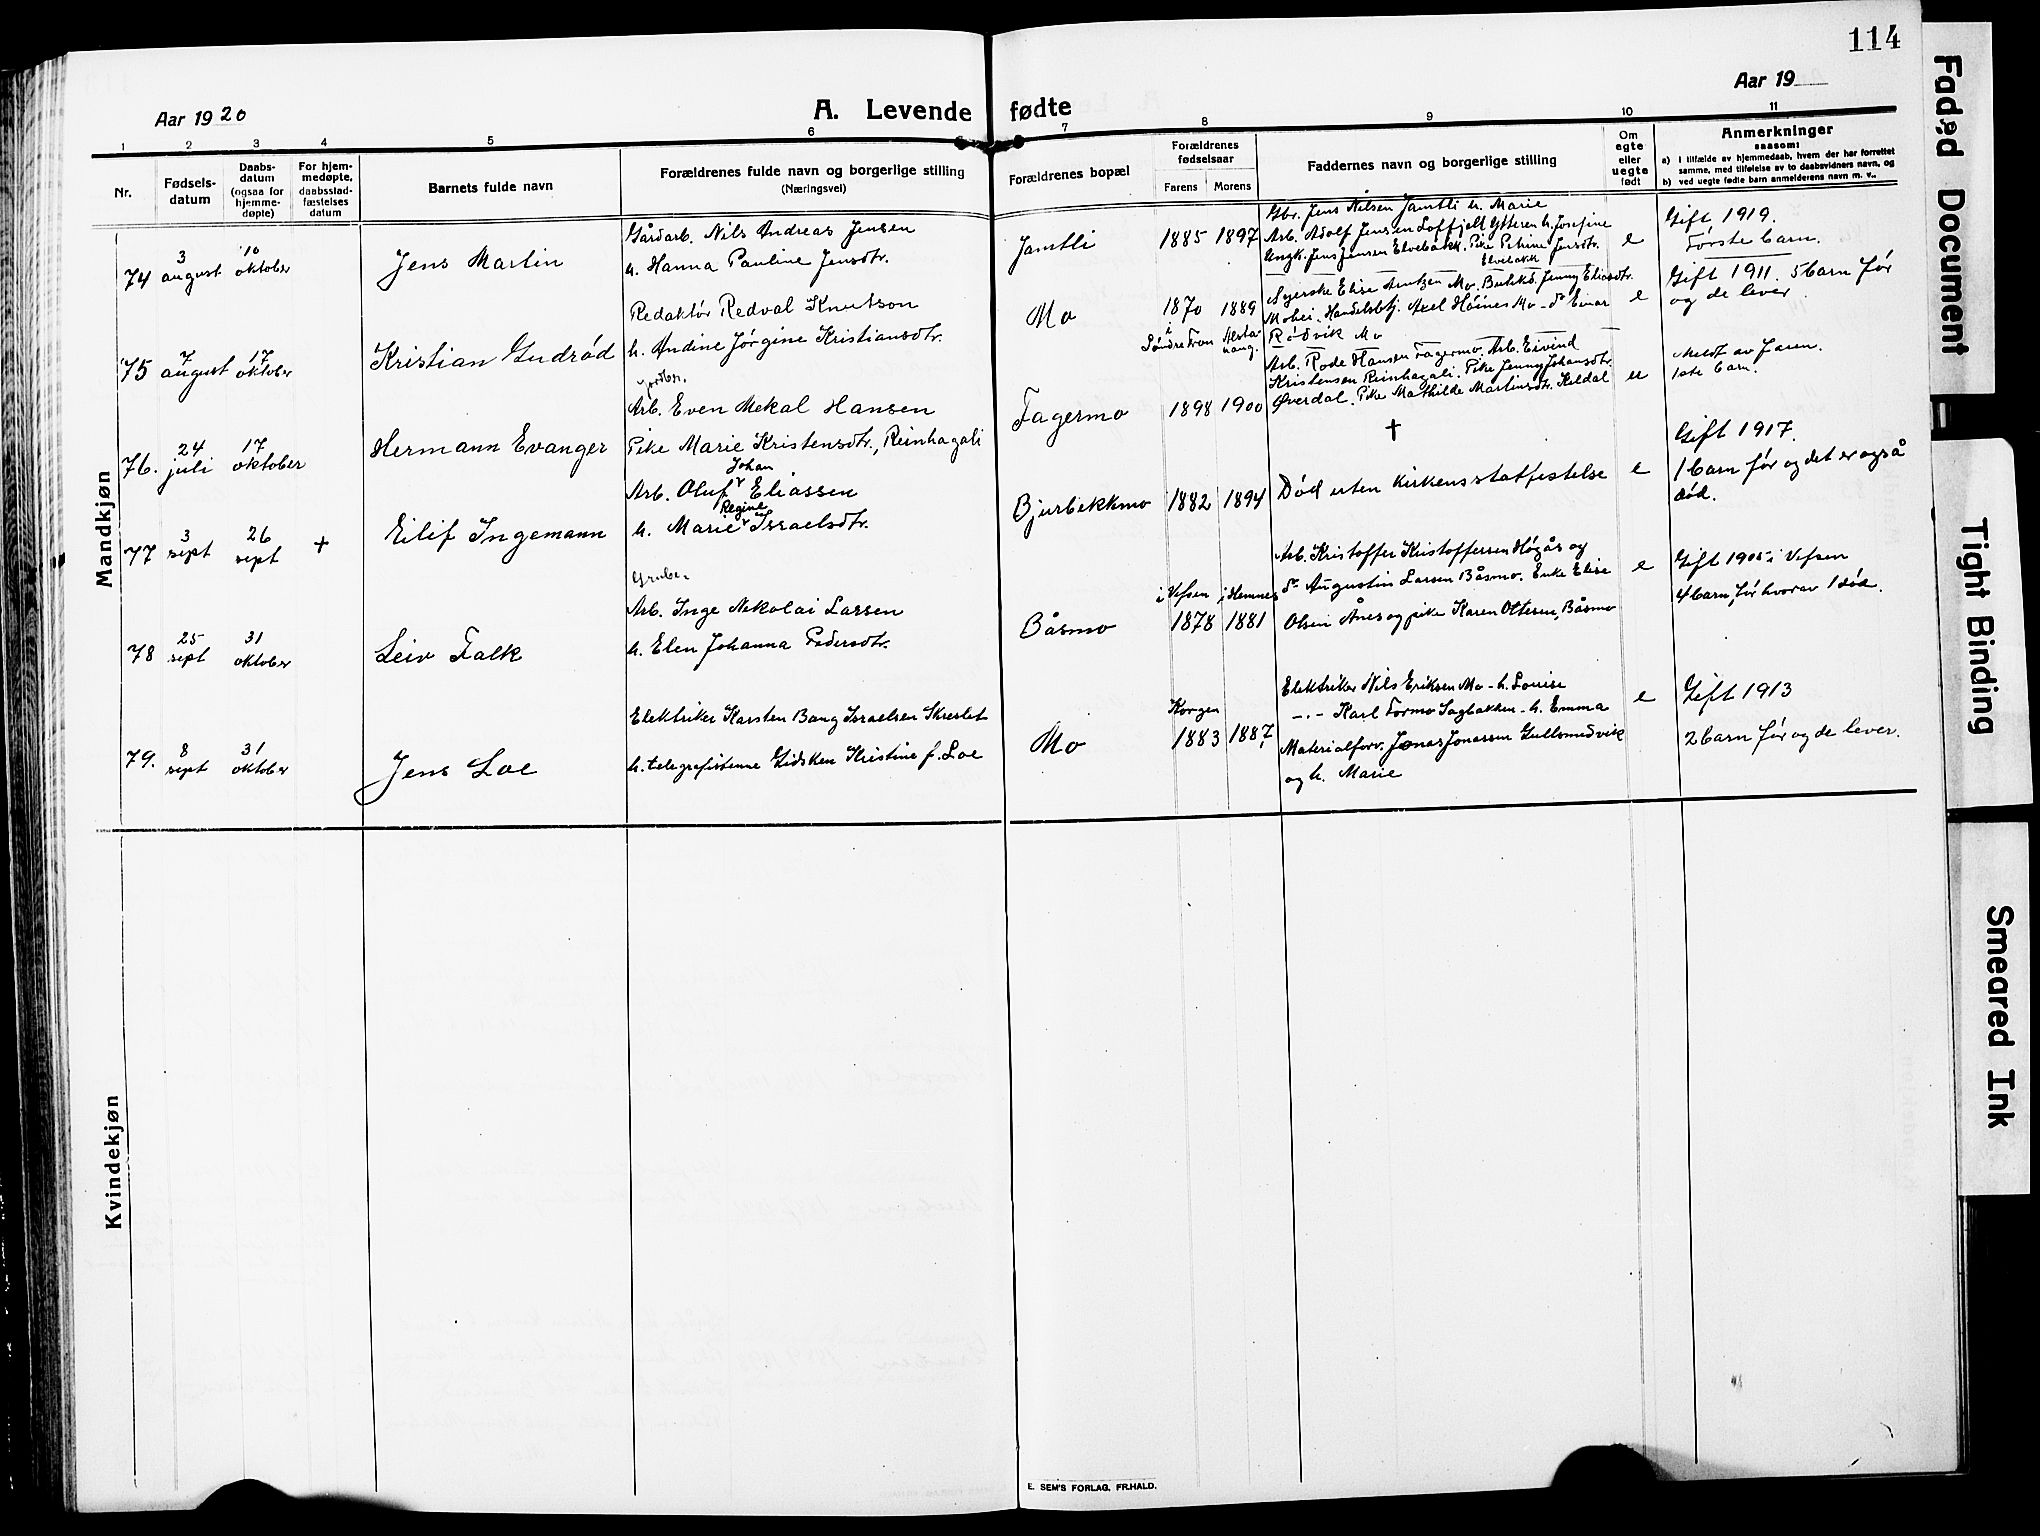 114
Aar 1920
A. Levende fødte
Aar 19
1 2 3 4 5 6 7 8 9 10 11
Nr.
Fødsels-
datum
Daabs-
datum
(ogsaa for
hjemme-
døpte)
For hjem-
medøpte,
daabsstad-
fæstelses
datum
Barnets fulde navn
Forældrenes fulde navn og borgerlige stilling
(Næringsvei)
Forældrenes bopæl
Forældrenes
fødselsaar
Farens Morens
Faddernes navn og borgerlige stilling
Om
egte
eller
uegte
født
Anmerkninger
saasom:
a) I tilfælde av hjemmedaab, hvem der har forrettet
samme, med tilføielse av to daabsvidners navn, og
b) ved uegte fødte barn anmelderens navn m. v..
Mandkjøn
74
3
august
10
oktober
Jens Martin
Gårdarb. Nils Andreas Jensen
h. Hanna Pauline Jensdtr.
Jamtli
1885 1897
Gbr. Jens Nilsen Jamtli h. Marie
Arb. Adolf Jensen Loffjell Ytteren h. Josefine
Angk. Jens Jensen Elvebakk. Pike Petrine Jensdtr.
Elvebakk
e
Gift 1919.
Første barn.
75
7
august
17
oktober
Kristian Gudrød
Redaktør Redval Knutson
h. Andine Jørgine Kristiansdtr.
Mo
1870 1889
i
Søndre Fron Alsta-
haug.
Syerske Elise Arntzen Mo. Butikkd. Jenny Eliasdtr.
Mohei. Handelsbtj. Axel Høines Mo - do Einar
Rødvik Mo
e
Gift 1911. 5 barn før
og de lever
76.
24
juli
17
oktober
Hermann Evanger
Jordbr.
Arb. Even Mekal Hansen
Pike Marie Kristensdtr., Reinhagali
Fagermo
1898 1900
Arb. Rode Hansen Fagermo. Arb. Eivind
Kristensen Reinhagali. Pike Jenny Johansdtr.
Øverdal. Pike Mathilde Martinsdtr. Heldal
ue
Meldt av faren.
1ste barn.
77
3
sept
26
sept
+
Eilif Ingemann
Johan
Arb. Oluf Eliassen
Regine
h. Marie Israelsdtr.
Bjurbekkmo
1882 1894
+
Død uten kirkens statfestelse
e
Gift 1917.
1 barn før og det er også
død.
78
25
sept
31
oktober
Leiv Falk
Grube.
Arb. Inge Nekolai Larsen
h. Elen Johanna Pedersdtr.
Båsmo
i Vefsen i Hemnes
1878 1881
Arb. Kristoffer Kristoffersen Høgås og
do Augustin Larsen Båsmo. Enke Elise
Olsen Ånes og pike Karen Ottesen, Båsmo
e
Gift 1905 i Vefsen
4 barn før hvorav 1 død.
79.
8
sept
31
oktober
Jens Loe
Elektriker Karsten Bang Israelsen Skreslet
h. telegrafistinne Gidsken Kristine f. Loe
Mo
Korgen
1883 1887
Elektriker Nils Eriksen Mo - h. Louise
-"- Karl Formo Sagbakken - h. Emma
Materialforv. Jonas Jonassen Gullsmedvik
og h. Marie
e
Gift 1913
2 barn før og de lever.
Kvindekjøn
E. SEM'S FORLAG, FR.HALD.
Faded Document
Tight Binding
Smeared Ink